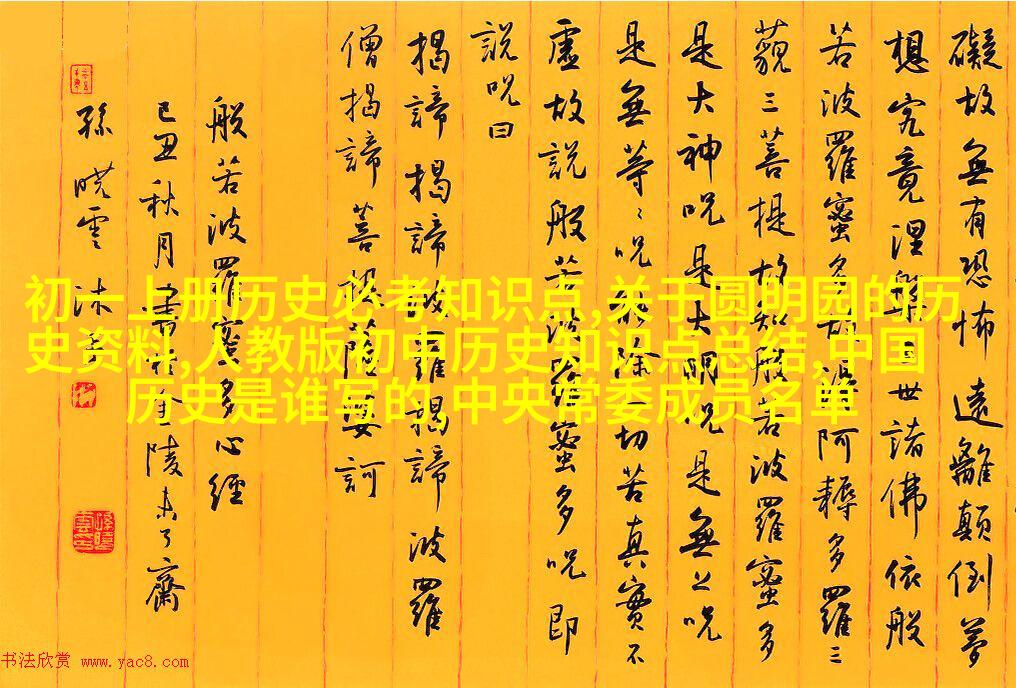 礙故無有恐怖遠離顛倒夢
想究竟涅槃三世諸佛依般
若波羅蜜多故得阿耨多羅三
藐三菩提故知般若波羅蜜多
是大神呪是大明呪是無上呪
是無等〻呪能除一切苦真實不
虛故說般若波羅蜜多呪即
說呪曰
揭諦揭諦波羅揭諦波羅
僧揭諦菩提薩婆訶
般若波羅蜜多心經
己丑秋月書於金陵未了齋
孫曉雲沐
初一上册历史必考知识点,关于圆明园的历
史资料,人教版初中历史知识点总结,中国
历史是谁写的,中央常委成员名单
书法欣赏 www.yac8.com